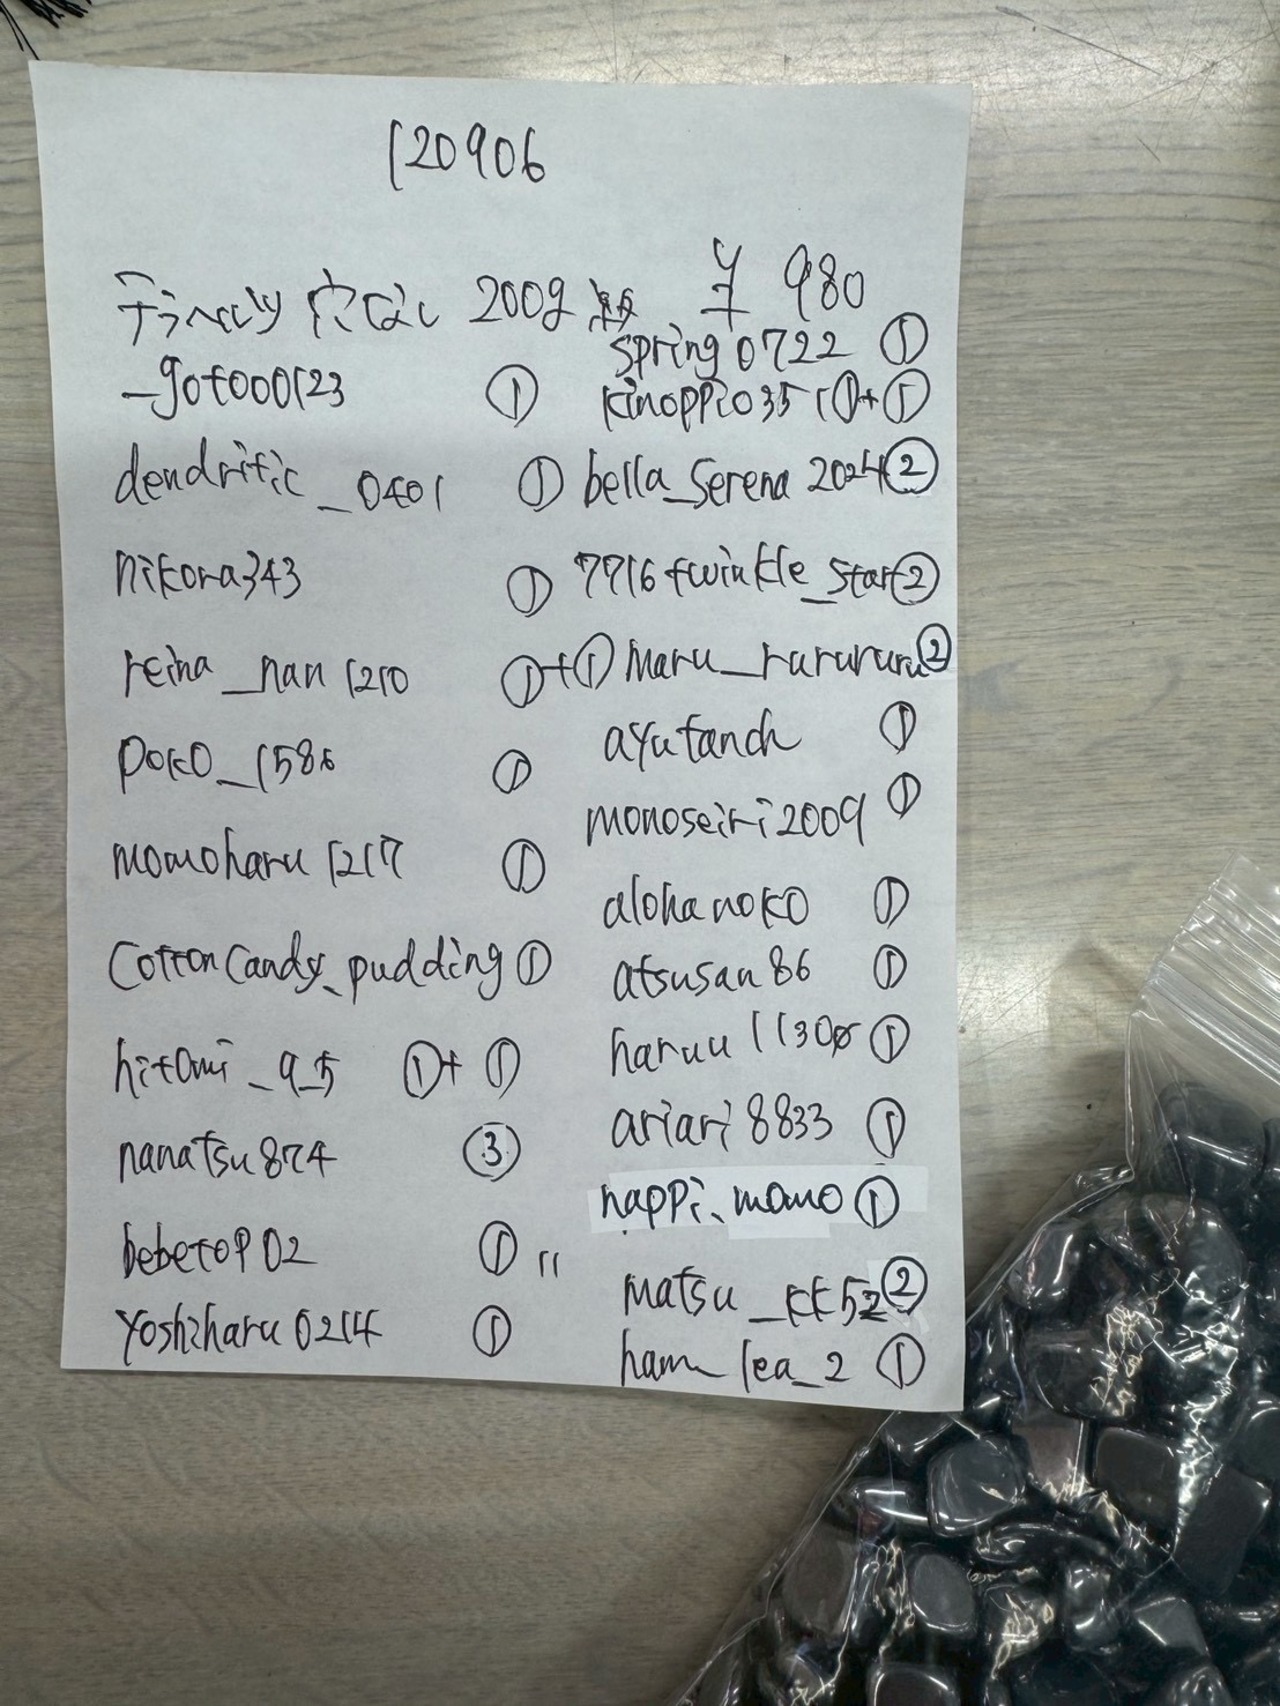 120906
テラヘルツ 穴なし 200g ¥ 980
_goto00123 ①
dendritic_0401 ①
nikora343 ①
reina_nan1210 ①+①
poko_1586 ①
momoharu1217 ①
Cottoncandy_pudding ①
hitomi_9_5 ①+ ①
nanatsu874 ③
bebetop02 ① 11
yoshiharu0214 ①
spring0722 ①
kinoppio351 ①+①
bella_serena2024 ②
7716twinkle_star ②
maru_rurururu ②
ayutanch ①
monoseiri2009 ①
alohanoko ①
atsusan86 ①
haruu ①
ariari8833 ①
nappi_momo ①
matsu_kk52 ②
ham_lea_2 ①